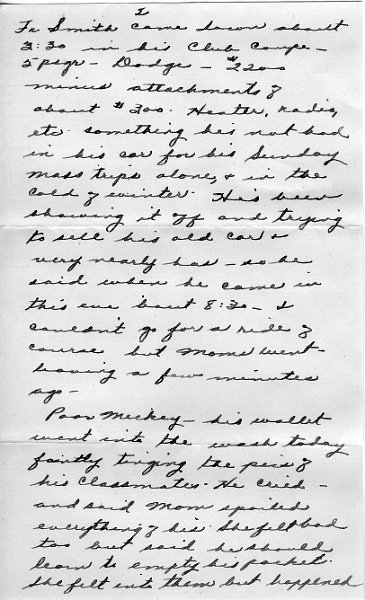 I
Fr Smith came down about
3:30 in his Club Coupe -
5 psgr - Dodge - $2200
minus attachments of
about $300. Heater, radio,
etc. something he's not had
in his car for his Sunday
mass trips alone, & in the
cold of winter. He's been
showing it off and trying
to sell his old car &
very nearly has - so he
said when he came in
this eve 'bout 8:30 - I
couldn't go for a ride of
course but Moms went -
leaving a few minutes
ago -
Poor Mickey - his wallet
went into the wash today
faintly tinging the pics of
his classmates. He cried -
and said Mom spoiled
everything of his. She felt bad
too but said he should
learn to empty his pocket.
She felt into them but happened